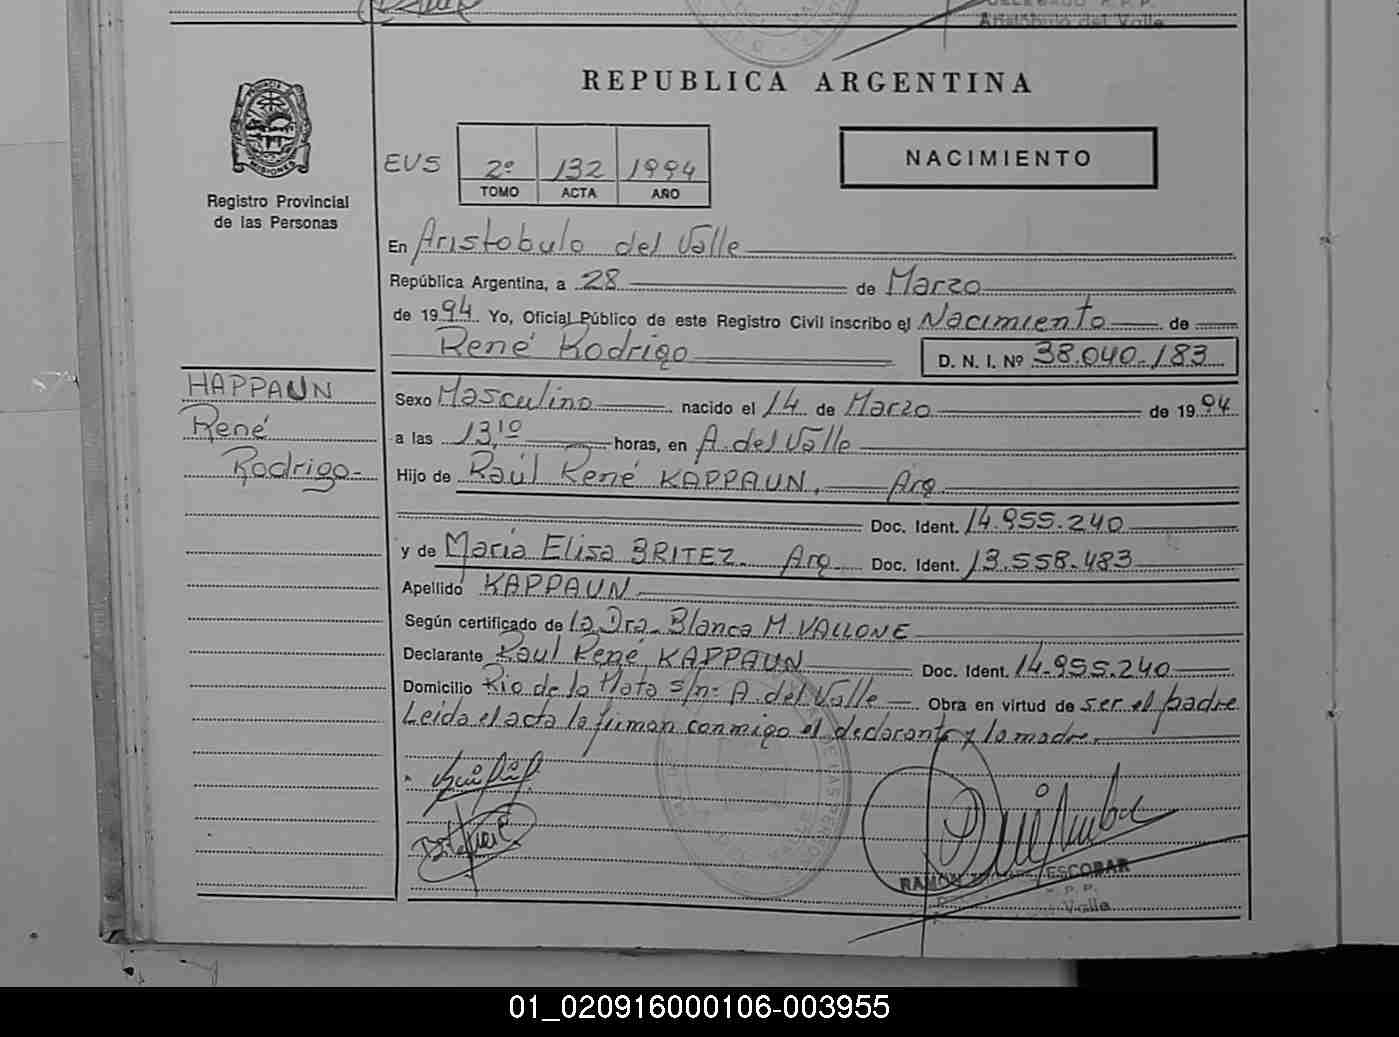 Aristóbulo del Valle
REPUBLICA ARGENTINA
Registro Provincial
de las Personas
EUS 2º 132 1994
TOMO ACTA AÑO
NACIMIENTO
En Aristobulo del Valle
República Argentina, a 28 de Marzo
de 1994 Yo, Oficial Público de este Registro Civil inscribo el Nacimiento de
René Rodrigo D. N. I. Nº 38.040.183
HAPPAUN
René
Rodrigo-
Sexo Masculino nacido el 14 de Marzo de 1994
a las 13,10 horas, en A. del Valle
Hijo de Raúl René KAPPAUN. Arg.
Doc. Ident. 14.955.240
y de María Elisa BRITEZ. Arg. Doc. Ident. 13.558.483
Apellido KAPPAUN
Según certificado de la Dra. Blanca M. VALLONE
Declarante Raul René KAPPAUN Doc. Ident. 14.955.240
Domicilio Rio de la Plata s/nº A. del Valle Obra en virtud de ser el padre
Leida el acta la firman conmigo el declarante y la madre.
RAMON ESCOBAR
Valle
01_020916000106-003955